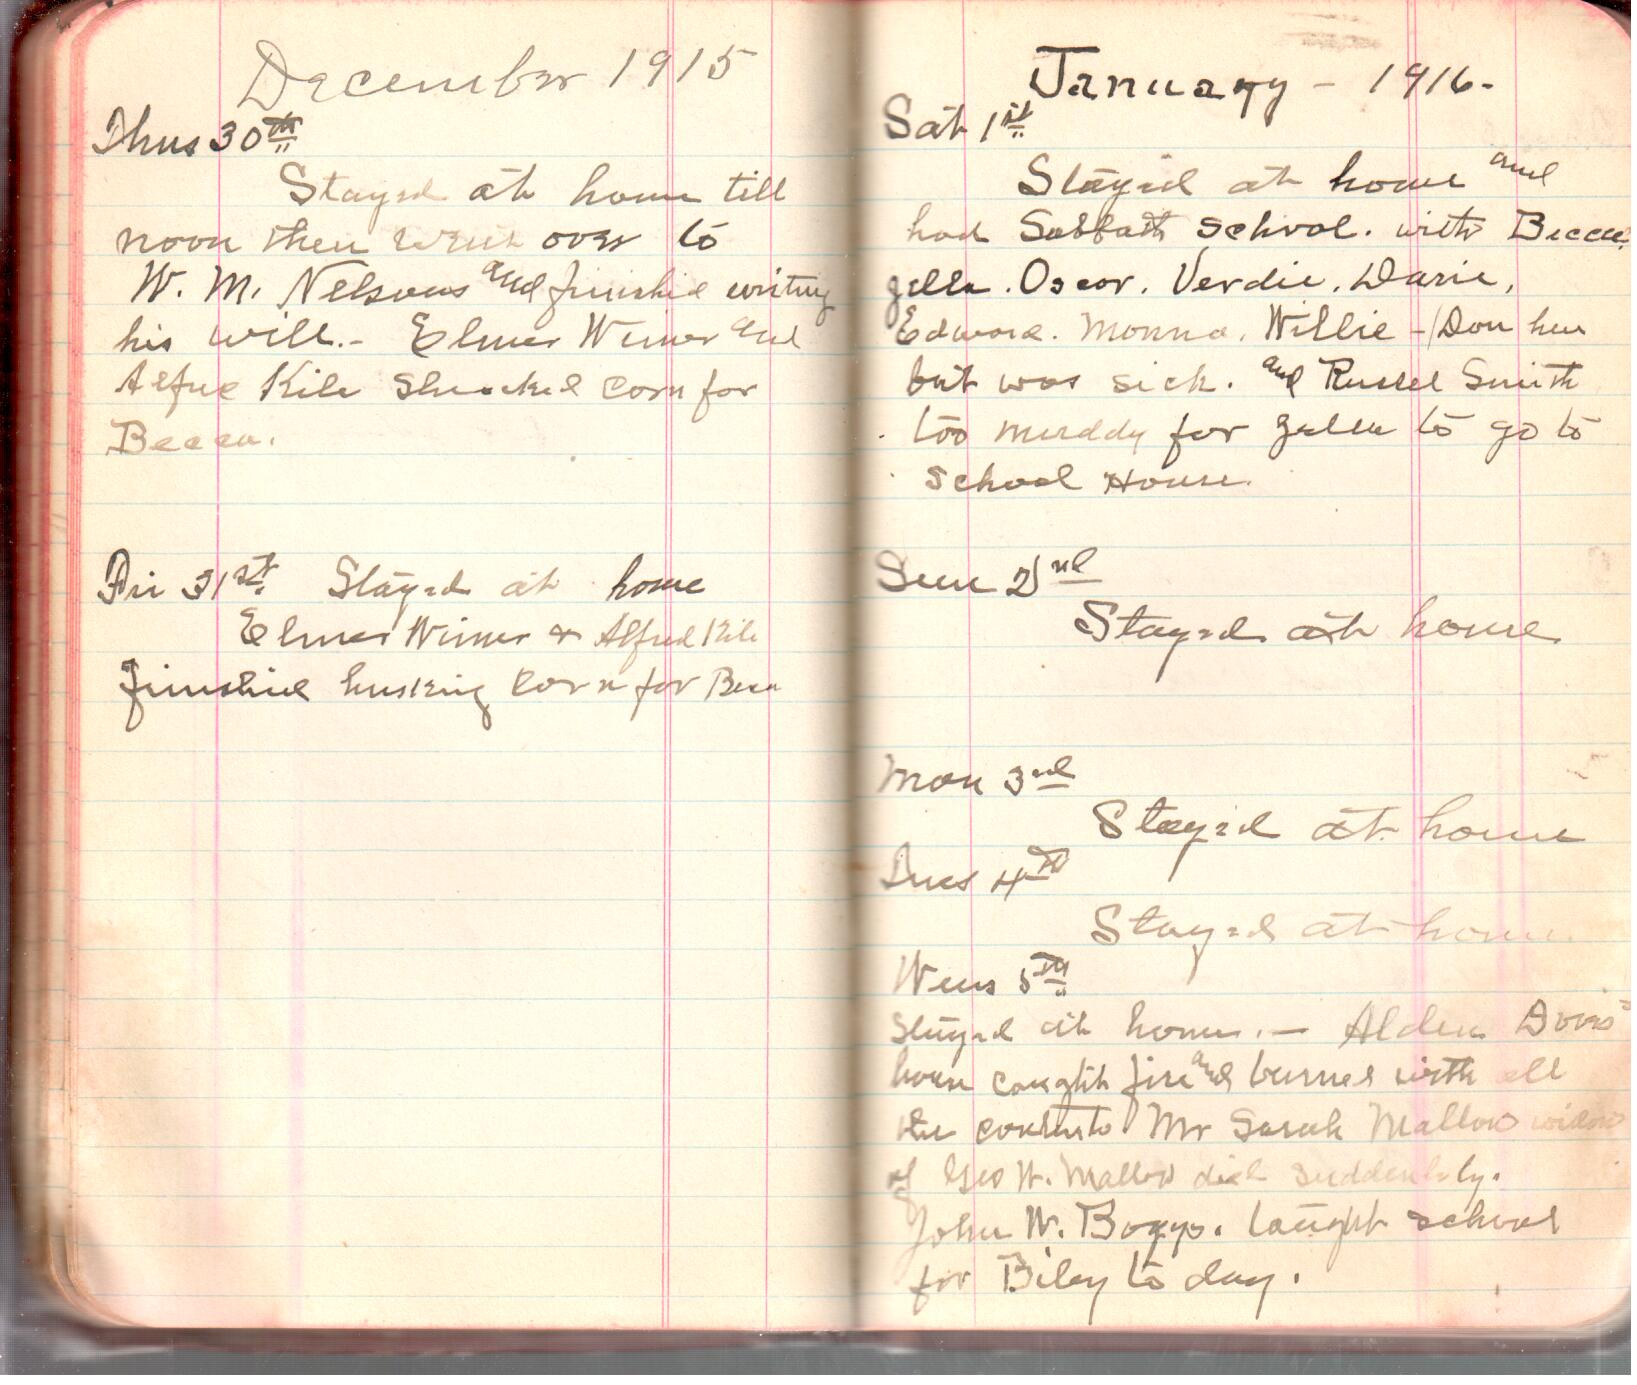 December 1915
Thus 30th
Stayed at home till
noon then went over to
W. M. Nelsons and finished writing
his will. - Elmer Wimer and
Alfred Kile shucked corn for
Becca.
Fri 31st. Stayed at home
Elmer Wimer & Alfred Kile
finished husking corn for Beca
January - 1916.
Sat 1st
Stayed at home and
had Sabbath school. with Becca
Oscar. Verdie.
Edward. Willie - Don her
but was sick. and Russel Smith
too muddy for to go to
school House.
Sun 2nd
Stayed at home
Mon 3rd
Stayed at home
Tues 4th
Stayed at home
Wens 5th
Stayed at home. - Alden
house caught fire and burned with all
the contents Mr Sarah Mallow widow
of Geo W. Mallow died suddenly.
John W. Boggs. taught school
for Biley to day.